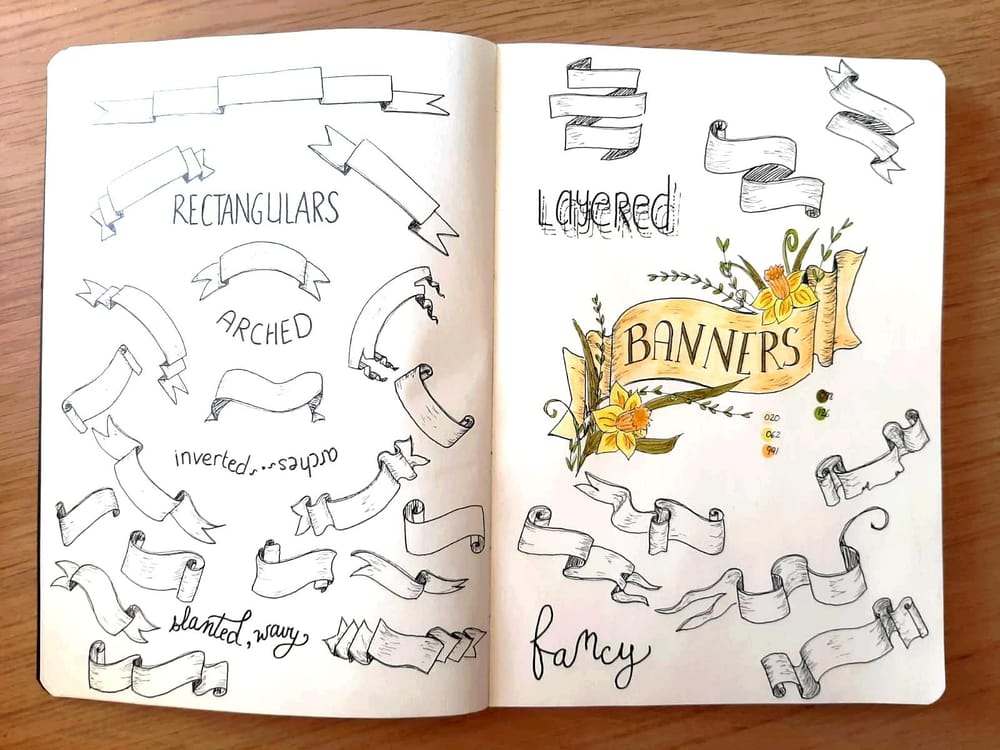 RECTANGULARS
ARCHED
inverted...arches
slanted, wavy
Layered
BANNERS
020
062
991
126
fancy